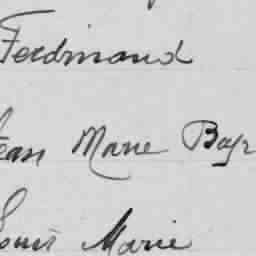 Ferdinand
Jean Marie
Louis Marie